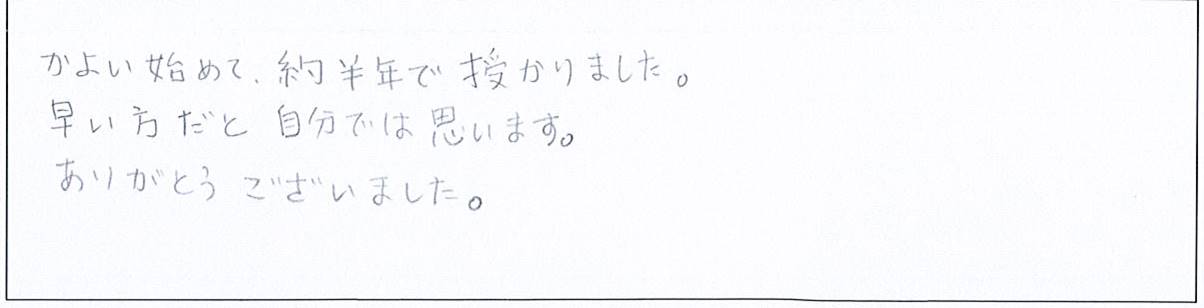 かよい始めて、約半年で授かりました。
早い方だと自分では思います。
ありがとうございました。